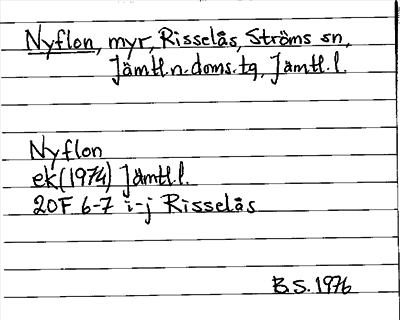 Nyflon, myr, Risselås, Ströms sn,
Jämtl.n.doms.tg, Jämtl.l.
Nyflon
ek(1974) Jämtl.l.
20F 6-7 i-j Risselås
B.S. 1976